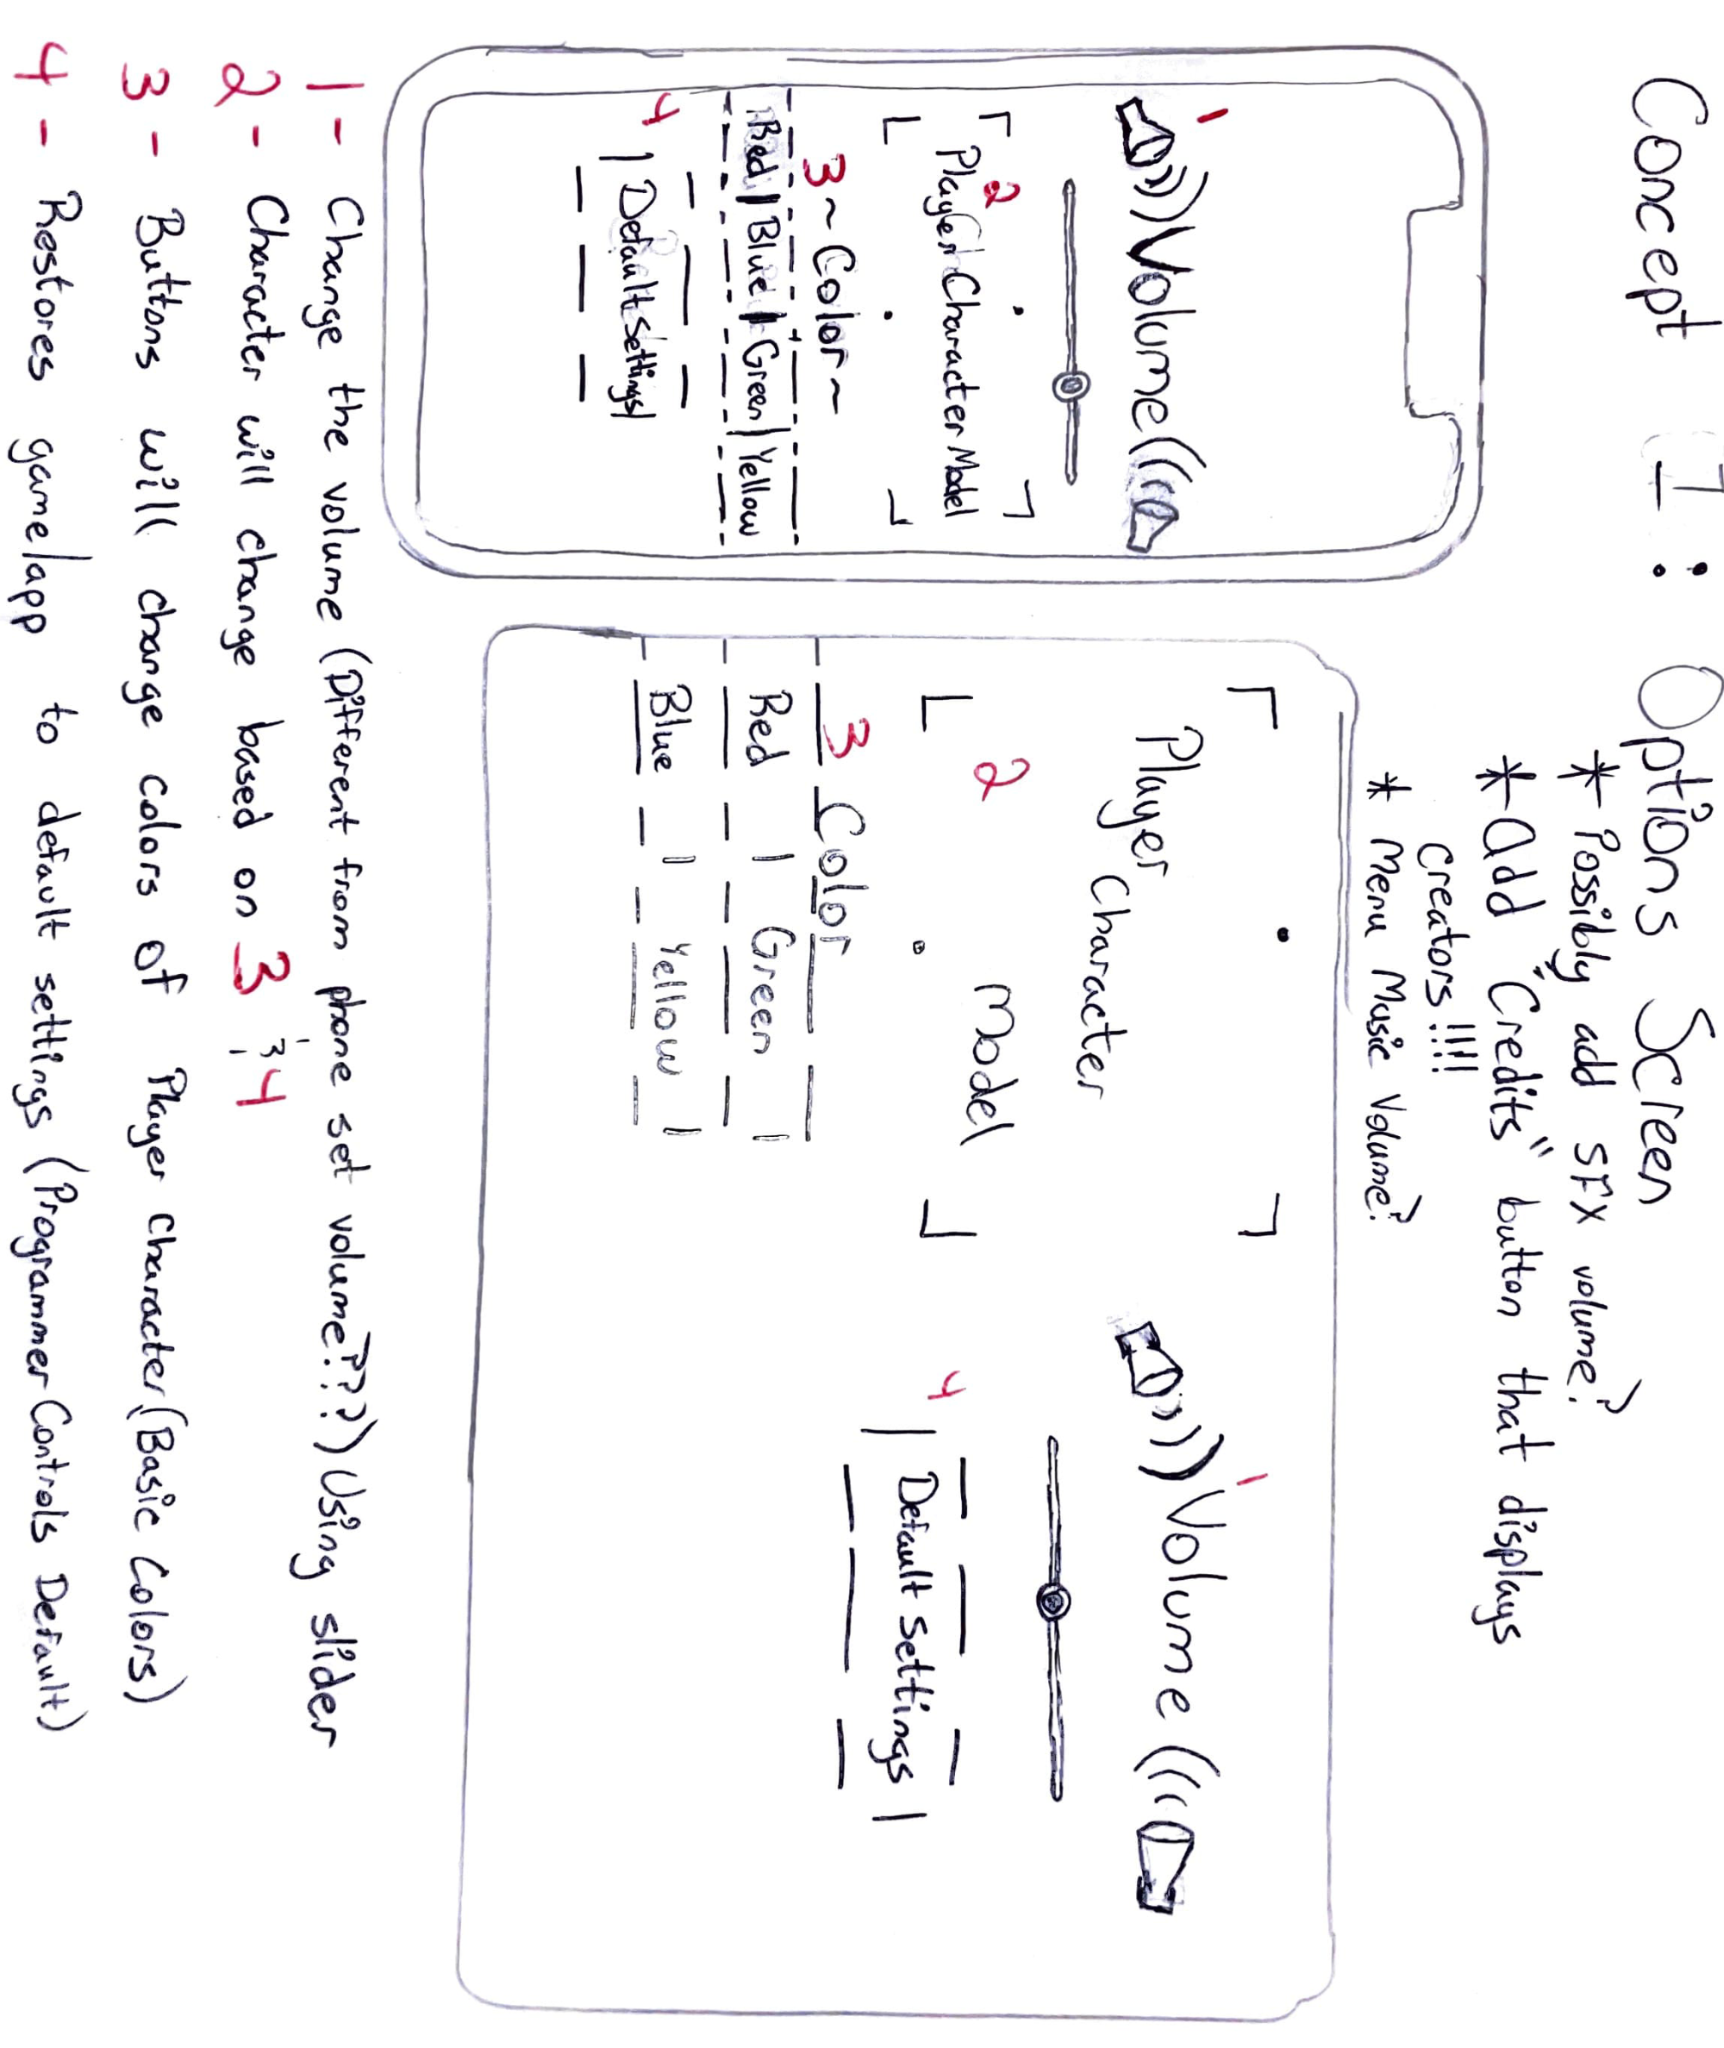 Concept I: Options Screen
* Possibly add SFX volume?
* Add "Credits" button that displays
Creators!!!!
* Menu Music Volume?
1
Volume
2
Player Character Model
3 ~ Color ~
Red | Blue | Green | Yellow
4
| Default Settings |
Player
Character
2 Model
3 Color
Red | Green |
Blue | Yellow |
1
Volume
4
| Default Settings |
1 - Change the volume (Different from phone set volume???) Using slider
2 - Character will change based on 3 & 4
3 - Buttons will change colors of Player Character (Basic Colors)
4 - Restores game/app to default settings (Programmer Controls Default)